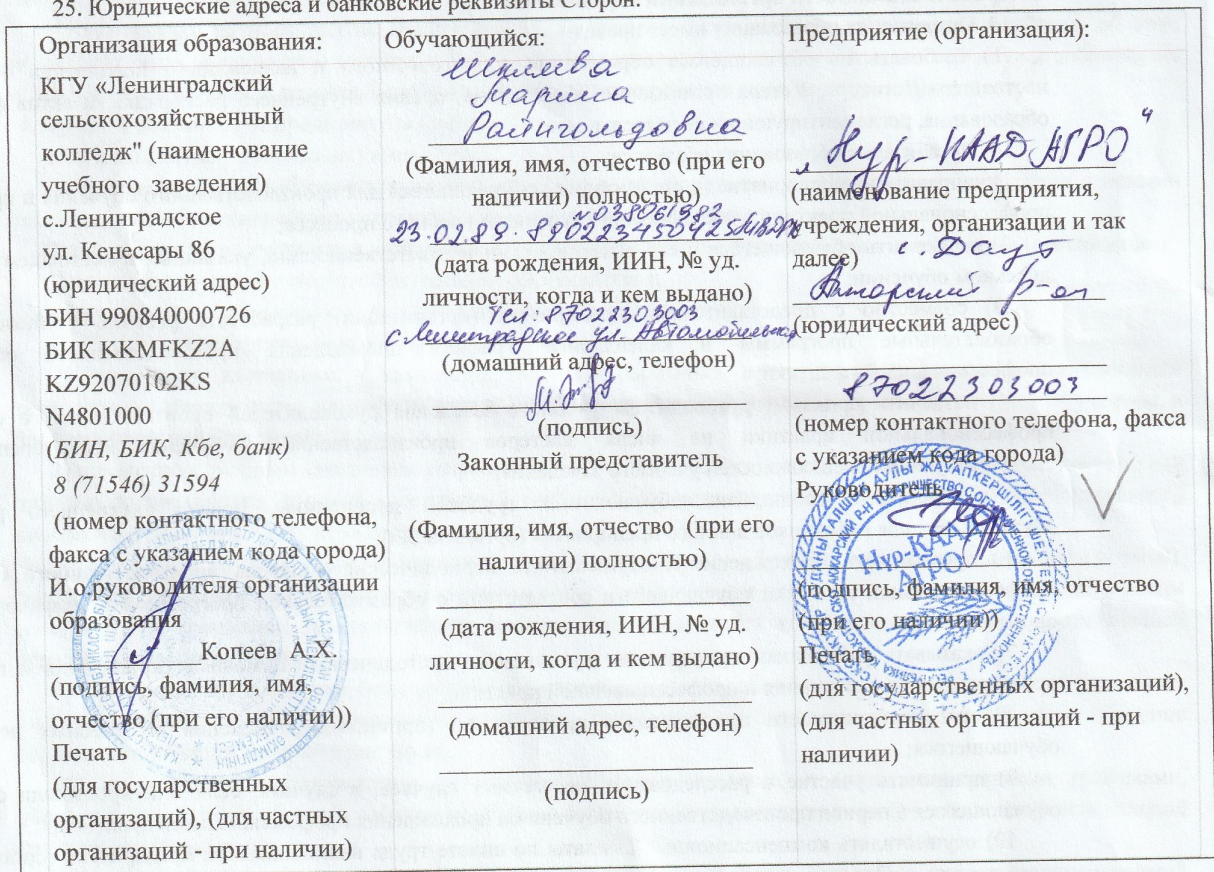 25. Юридические адреса и банковские реквизиты Сторон.
Организация образования:
КГУ «Ленинградский
сельскохозяйственный
колледж" (наименование
учебного заведения)
с.Ленинградское
ул. Кенесары 86
(юридический адрес)
БИН 990840000726
БИК KKMFKZ2A
KZ92070102KS
N4801000
(БИН, БИК, Кбе, банк)
8 (71546) 31594
(номер контактного телефона,
факса с указанием кода города)
И.о.руководителя организации
образования
Копеев А.Х.
(подпись, фамилия, имя,
отчество (при его наличии))
Печать
(для государственных
организаций), (для частных
организаций - при наличии)
Обучающийся:
Марина
(Фамилия, имя, отчество (при его
наличии) полностью)
038061982
23.02.89. 890223450425
(дата рождения, ИИН, № уд.
личности, когда и кем выдано)
Тел: 87022303003
с Ленинградское ул Автомобильная
(домашний адрес, телефон)
(подпись)
Законный представитель
(Фамилия, имя, отчество (при его
наличии) полностью)
(дата рождения, ИИН, № уд.
личности, когда и кем выдано)
(домашний адрес, телефон)
(подпись)
Предприятие (организация):
„Нур-КААД АГРО"
(наименование предприятия,
учреждения, организации и так
далее) с. Даут
р-он
(юридический адрес)
87022303003
(номер контактного телефона, факса
с указанием кода города)
Руководитель
Нур-КААД
АГРО
(подпись, фамилия, имя, отчество
(при его наличии))
Печать
(для государственных организаций),
(для частных организаций - при
наличии)